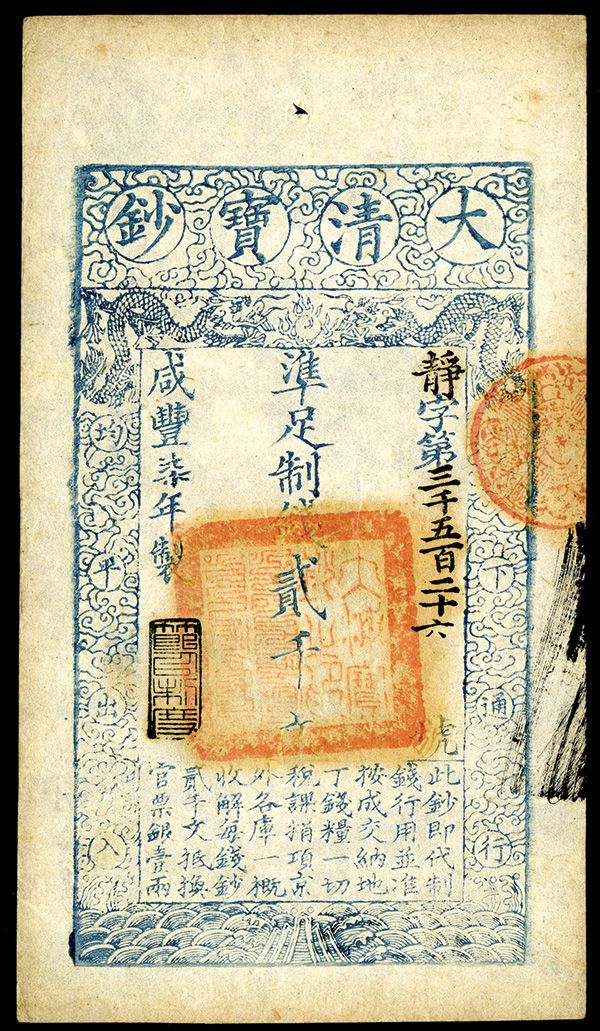 大清寶鈔
靜字第三千五百二十六號
準足制錢貳千文
咸豐柒年製
下通行
均平出入
此鈔即代制
錢行用並准
按成交納地
丁錢糧一切
稅課捐項京
外各庫一概
收解每錢鈔
貳千文抵換
官票銀壹兩